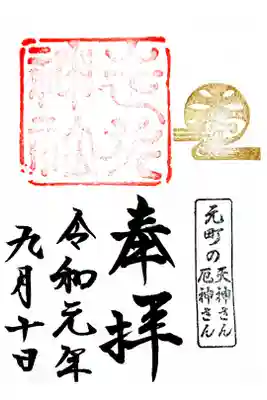 走水
神社
奉拝
元町の天神さん
厄神さん
令和元年
九月十日